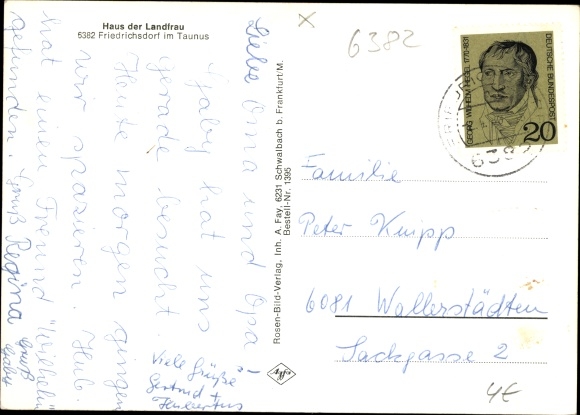 Haus der Landfrau
6382 Friedrichsdorf im Taunus
Liebe Oma und Opa
Gaby hat uns
gerade besucht.
Heute morgen gingen
wir spazieren. Hub.
hat einen Freund
gefunden. Gruß Regina
Gruß
Gaby
Viele Grüße
Gertrud +
Hubertus
Rosen-Bild-Verlag, Inh. A. Fay, 6231 Schwalbach b. Frankfurt/M.
Bestell-Nr. 1395
Agfa
6382
GEORG WILHELM FR. HEGEL 1770-1831
DEUTSCHE BUNDESPOST
20
Familie
Peter Knipp
6081 Wallerstädten
Sackgasse 2
4€